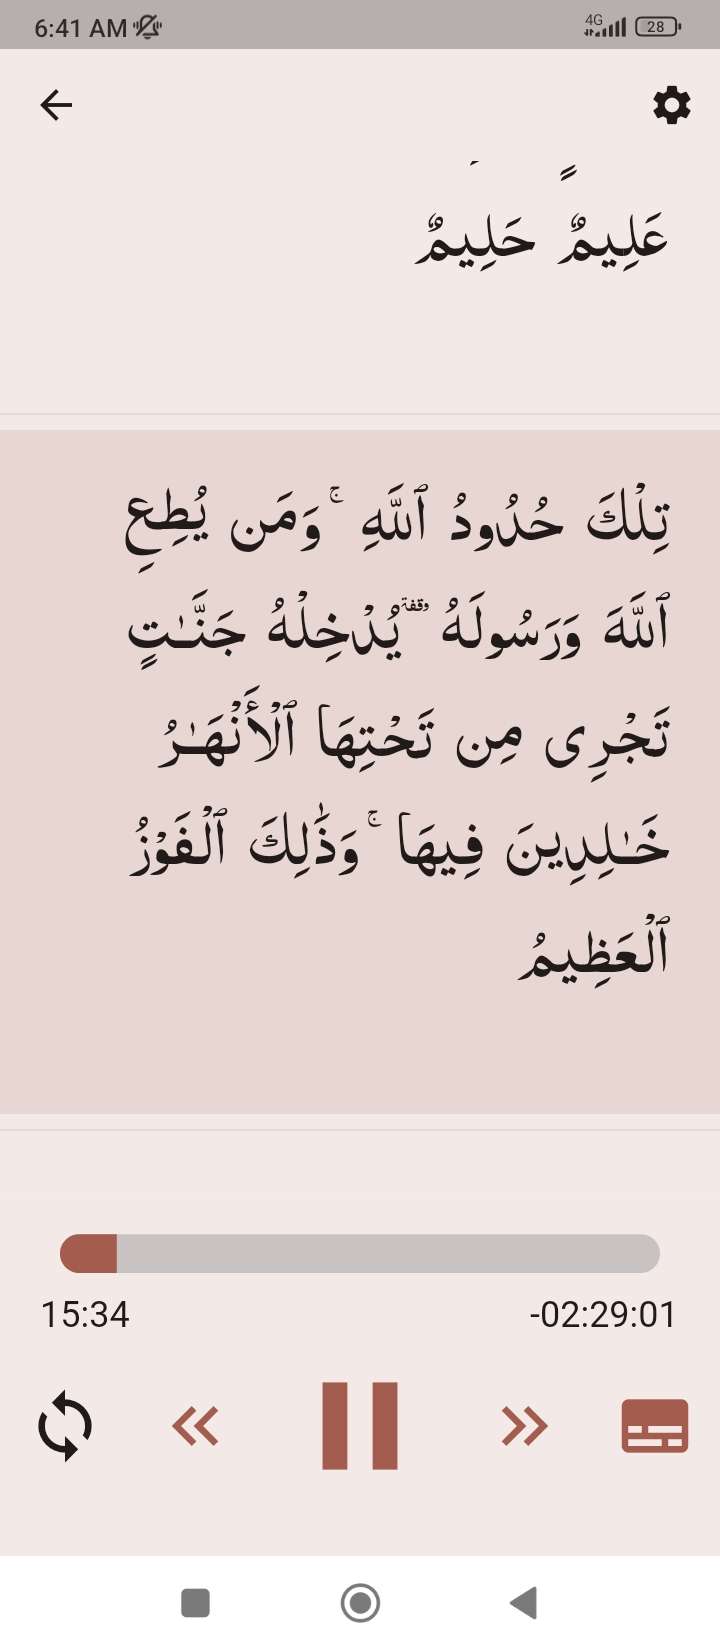 6:41 AM
4G
28
عَلِيمٌ حَلِيمٌ
تِلْكَ حُدُودُ ٱللَّهِ ۚ وَمَن يُطِعِ
ٱللَّهَ وَرَسُولَهُ وقفة يُدْخِلْهُ جَنَّـٰتٍ
تَجْرِى مِن تَحْتِهَا ٱلْأَنْهَـٰرُ
خَـٰلِدِينَ فِيهَا ۚ وَذَٰلِكَ ٱلْفَوْزُ
ٱلْعَظِيمُ
15:34
-02:29:01